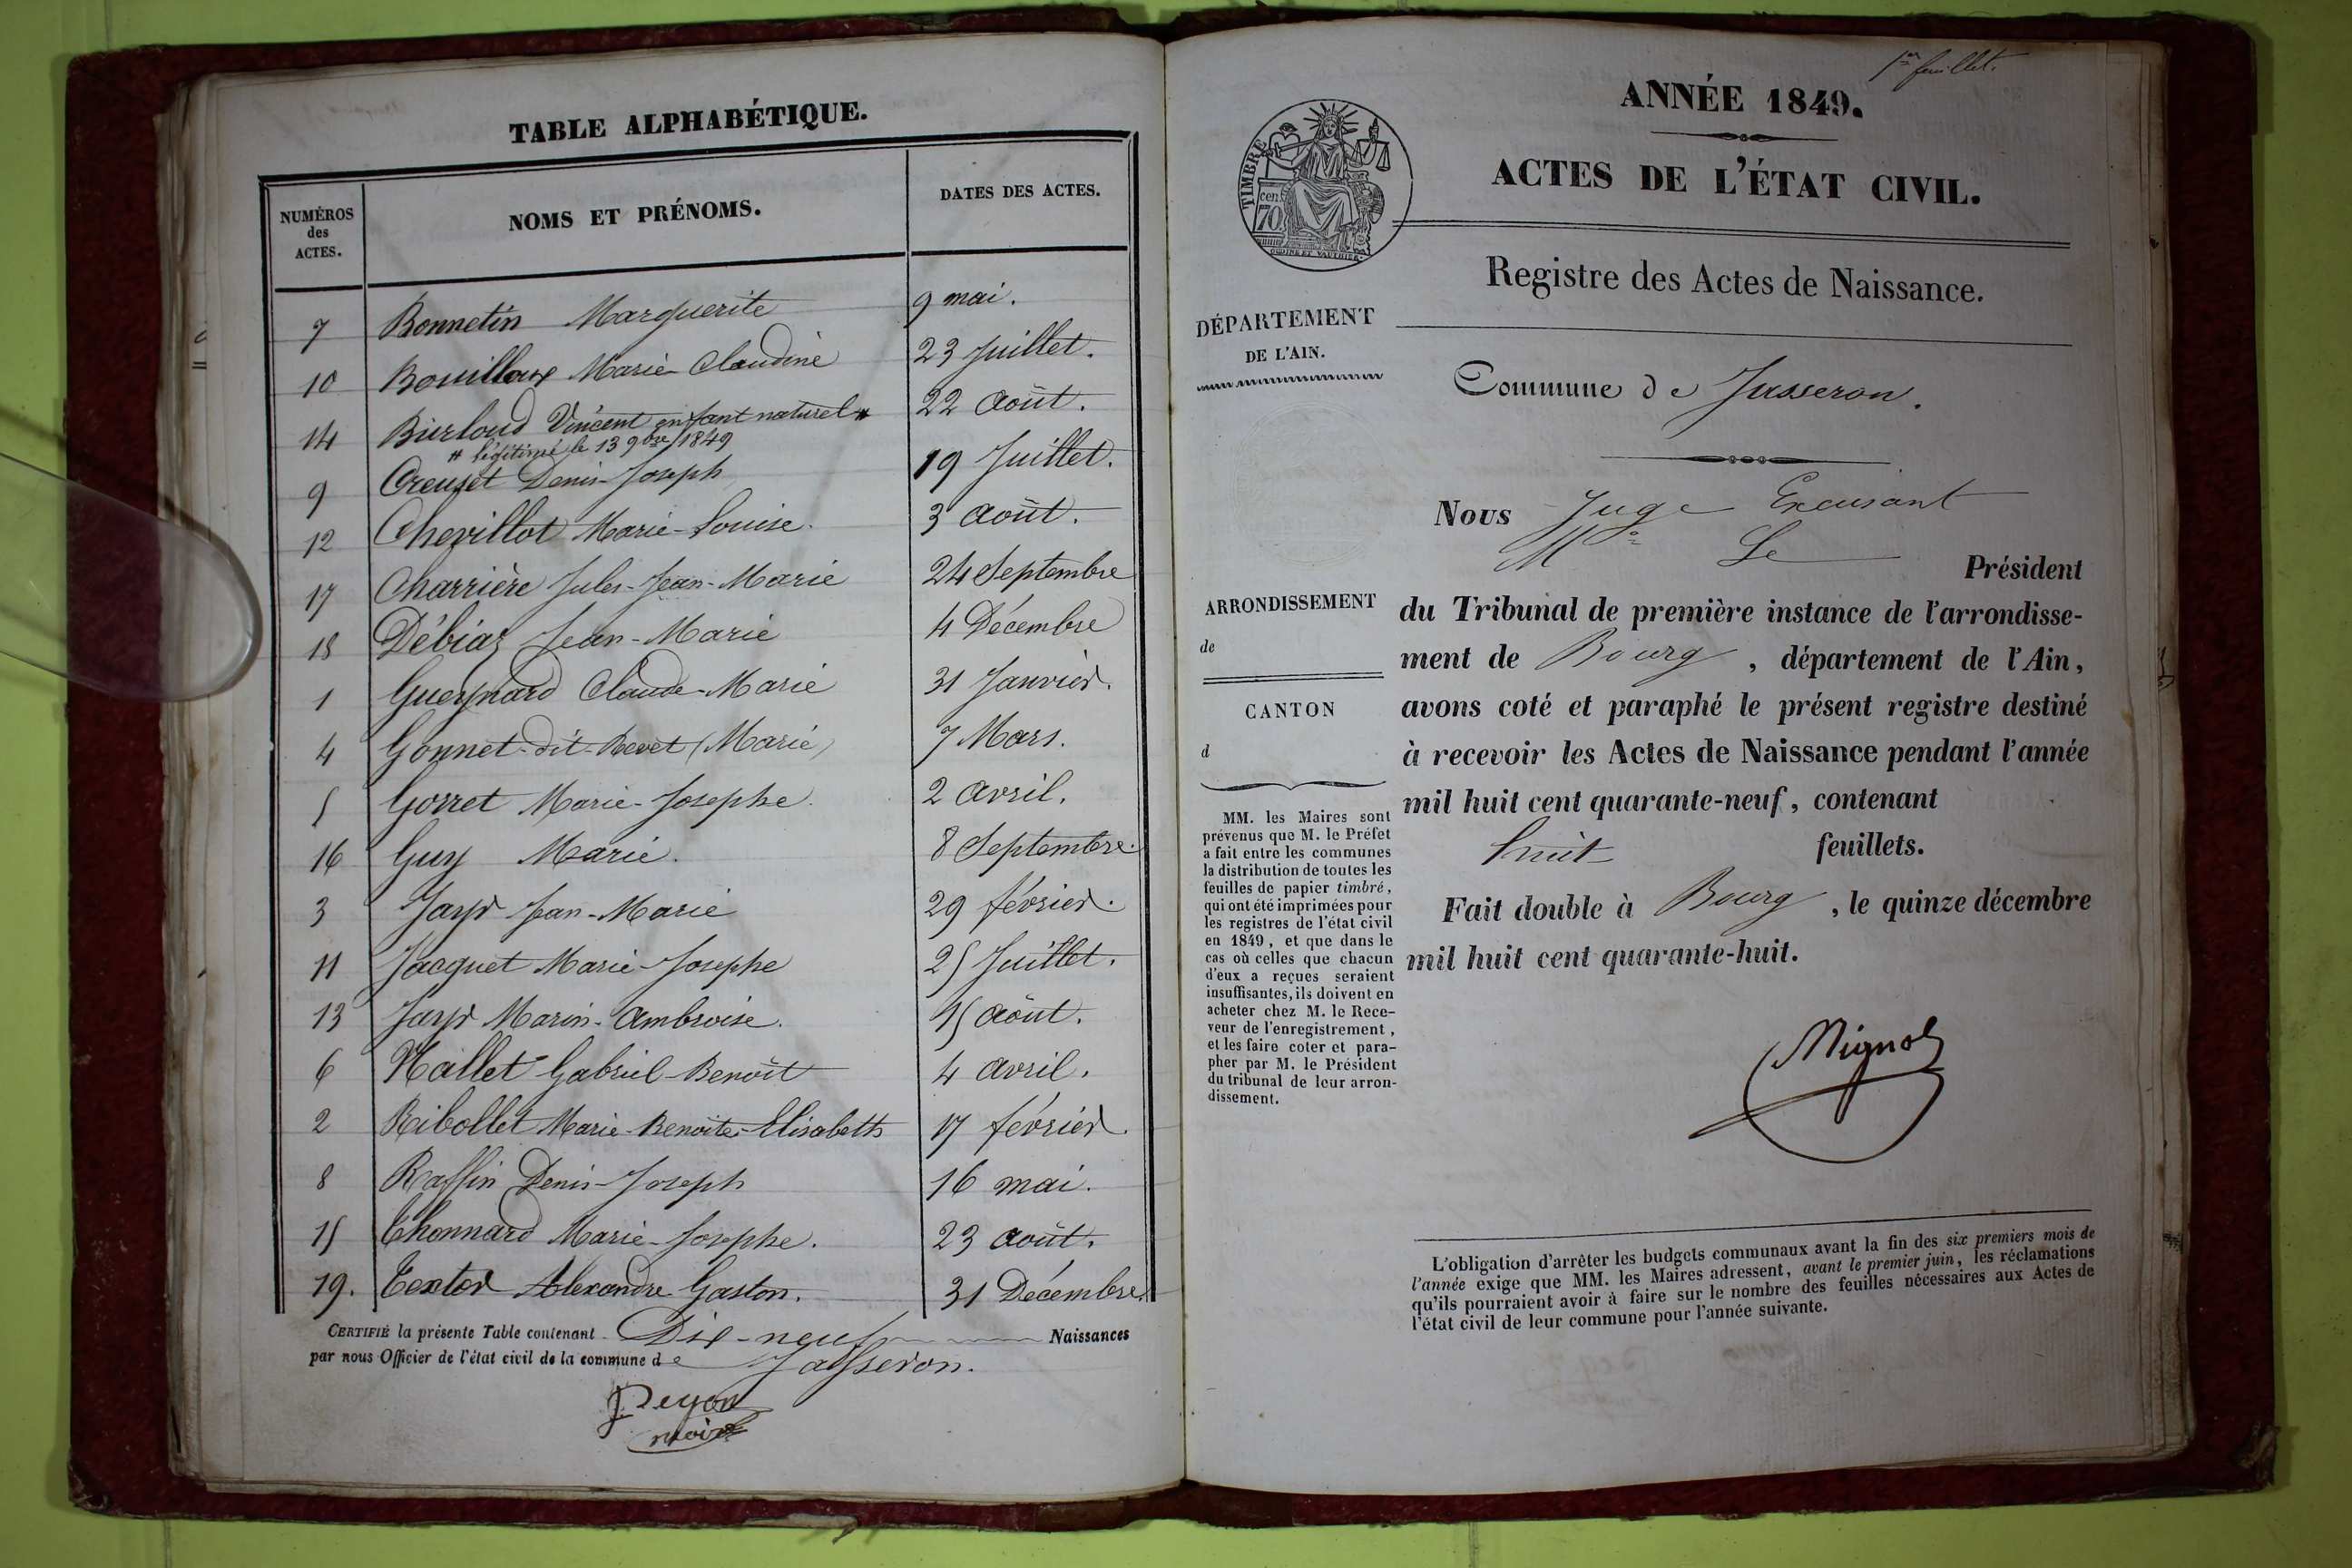 TABLE ALPHABÉTIQUE.
NUMÉROS des ACTES. NOMS ET PRÉNOMS. DATES DES ACTES.
7 Bonnetin Marguerite 9 mai.
10 Bouilloux Marie Claudine 23 Juillet.
14 Burloud Vincent enfant naturel # 22 Août.
# légitimé le 13 9bre 1849
9 Creuzet Denis-Joseph 19 Juillet.
12 Chevillot Marie-Louise. 3 août.
17 Charrière Jules-Jean-Marie 24 Septembre
18 Débiaz Jean-Marie 4 Décembre
1 Gueynard Claude-Marie 31 Janvier.
4 Gonnet-dit-Revet (Marie) 7 Mars.
5 Gorret Marie-Josephe. 2 avril.
16 Guy Marie. 8 Septembre.
3 Jayr Jean-Marie 29 février.
11 Jacquet Marie-Josephe 25 Juillet.
13 Jayr Marin-Ambroise. 15 août.
6 Mallet Gabriel-Benoît 4 avril.
2 Ribollet Marie-Benoite-Elisabeth 17 février.
8 Raffin Denis-Joseph 16 mai.
15 Thonnard Marie-Josephe. 23 août.
19. Textor Alexandre Gaston. 31 Décembre.
CERTIFIÉ la présente Table contenant Dix-neuf Naissances
par nous Officier de l'état civil de la commune de Jasseron.
Peyon
maire
1er feuillet.
ANNÉE 1849.
ACTES DE L'ÉTAT CIVIL.
TIMBRE
70 cen.
Registre des Actes de Naissance.
DÉPARTEMENT
DE L'AIN.
Commune de Jasseron.
Nous Juge Excusant
Mr Le
Président
ARRONDISSEMENT
de
CANTON
d
du Tribunal de première instance de l'arrondisse-
ment de Bourg, département de l'Ain,
avons coté et paraphé le présent registre destiné
à recevoir les Actes de Naissance pendant l'année
mil huit cent quarante-neuf, contenant
huit feuillets.
Fait double à Bourg, le quinze décembre
mil huit cent quarante-huit.
Mignot
MM. les Maires sont
prévenus que M. le Préfet
a fait entre les communes
la distribution de toutes les
feuilles de papier timbré,
qui ont été imprimées pour
les registres de l'état civil
en 1849, et que dans le
cas où celles que chacun
d'eux a reçues seraient
insuffisantes, ils doivent en
acheter chez M. le Rece-
veur de l'enregistrement,
et les faire coter et para-
pher par M. le Président
du tribunal de leur arron-
dissement.
L'obligation d'arrêter les budgets communaux avant la fin des six premiers mois de
l'année exige que MM. les Maires adressent, avant le premier juin, les réclamations
qu'ils pourraient avoir à faire sur le nombre des feuilles nécessaires aux Actes de
l'état civil de leur commune pour l'année suivante.